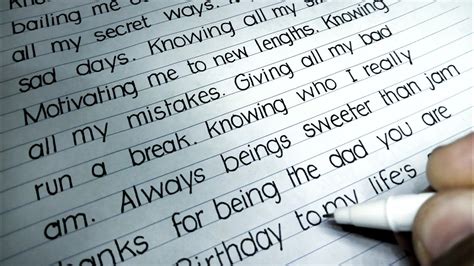 bailing me o
all my secret ways.
sad days. Knowing all my si
Motivating me to new lengths. Knowing
all my mistakes. Giving all my bad
run a break. Knowing who I really
am. Always beings sweeter than jam
hanks for being the dad you are
Birthday to my life's